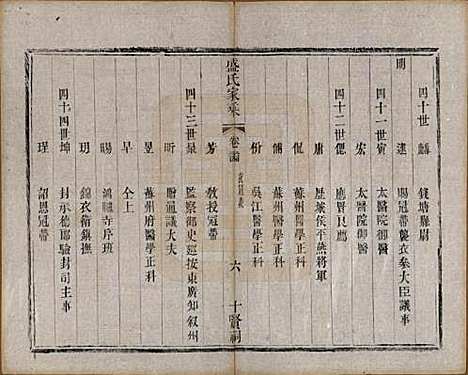 明
四十世 麟 錢塘縣尉
逵 賜冠帶襲衣參大臣議事
四十一世寅 太醫院御醫
宏 太醫院御醫
四十二世偲 應賢良薦
庸 歷象依平燕將軍
侃 蘇州醫學正科
俌 蘇州醫學正科
份 吳江醫學正科
盛氏家乘
卷
六
十賢祠
芳 敎授冠帶
四十三世㬎 監察御史廵按東廣知叙州
昕 贈通議大夫
昱 蘇州府醫學正科
早 仝上
暘 鴻臚寺序班
玥 錦衣衛鎮撫
四十四世坤 封承德郎驗封司主事
瑆 詔恩冠帶